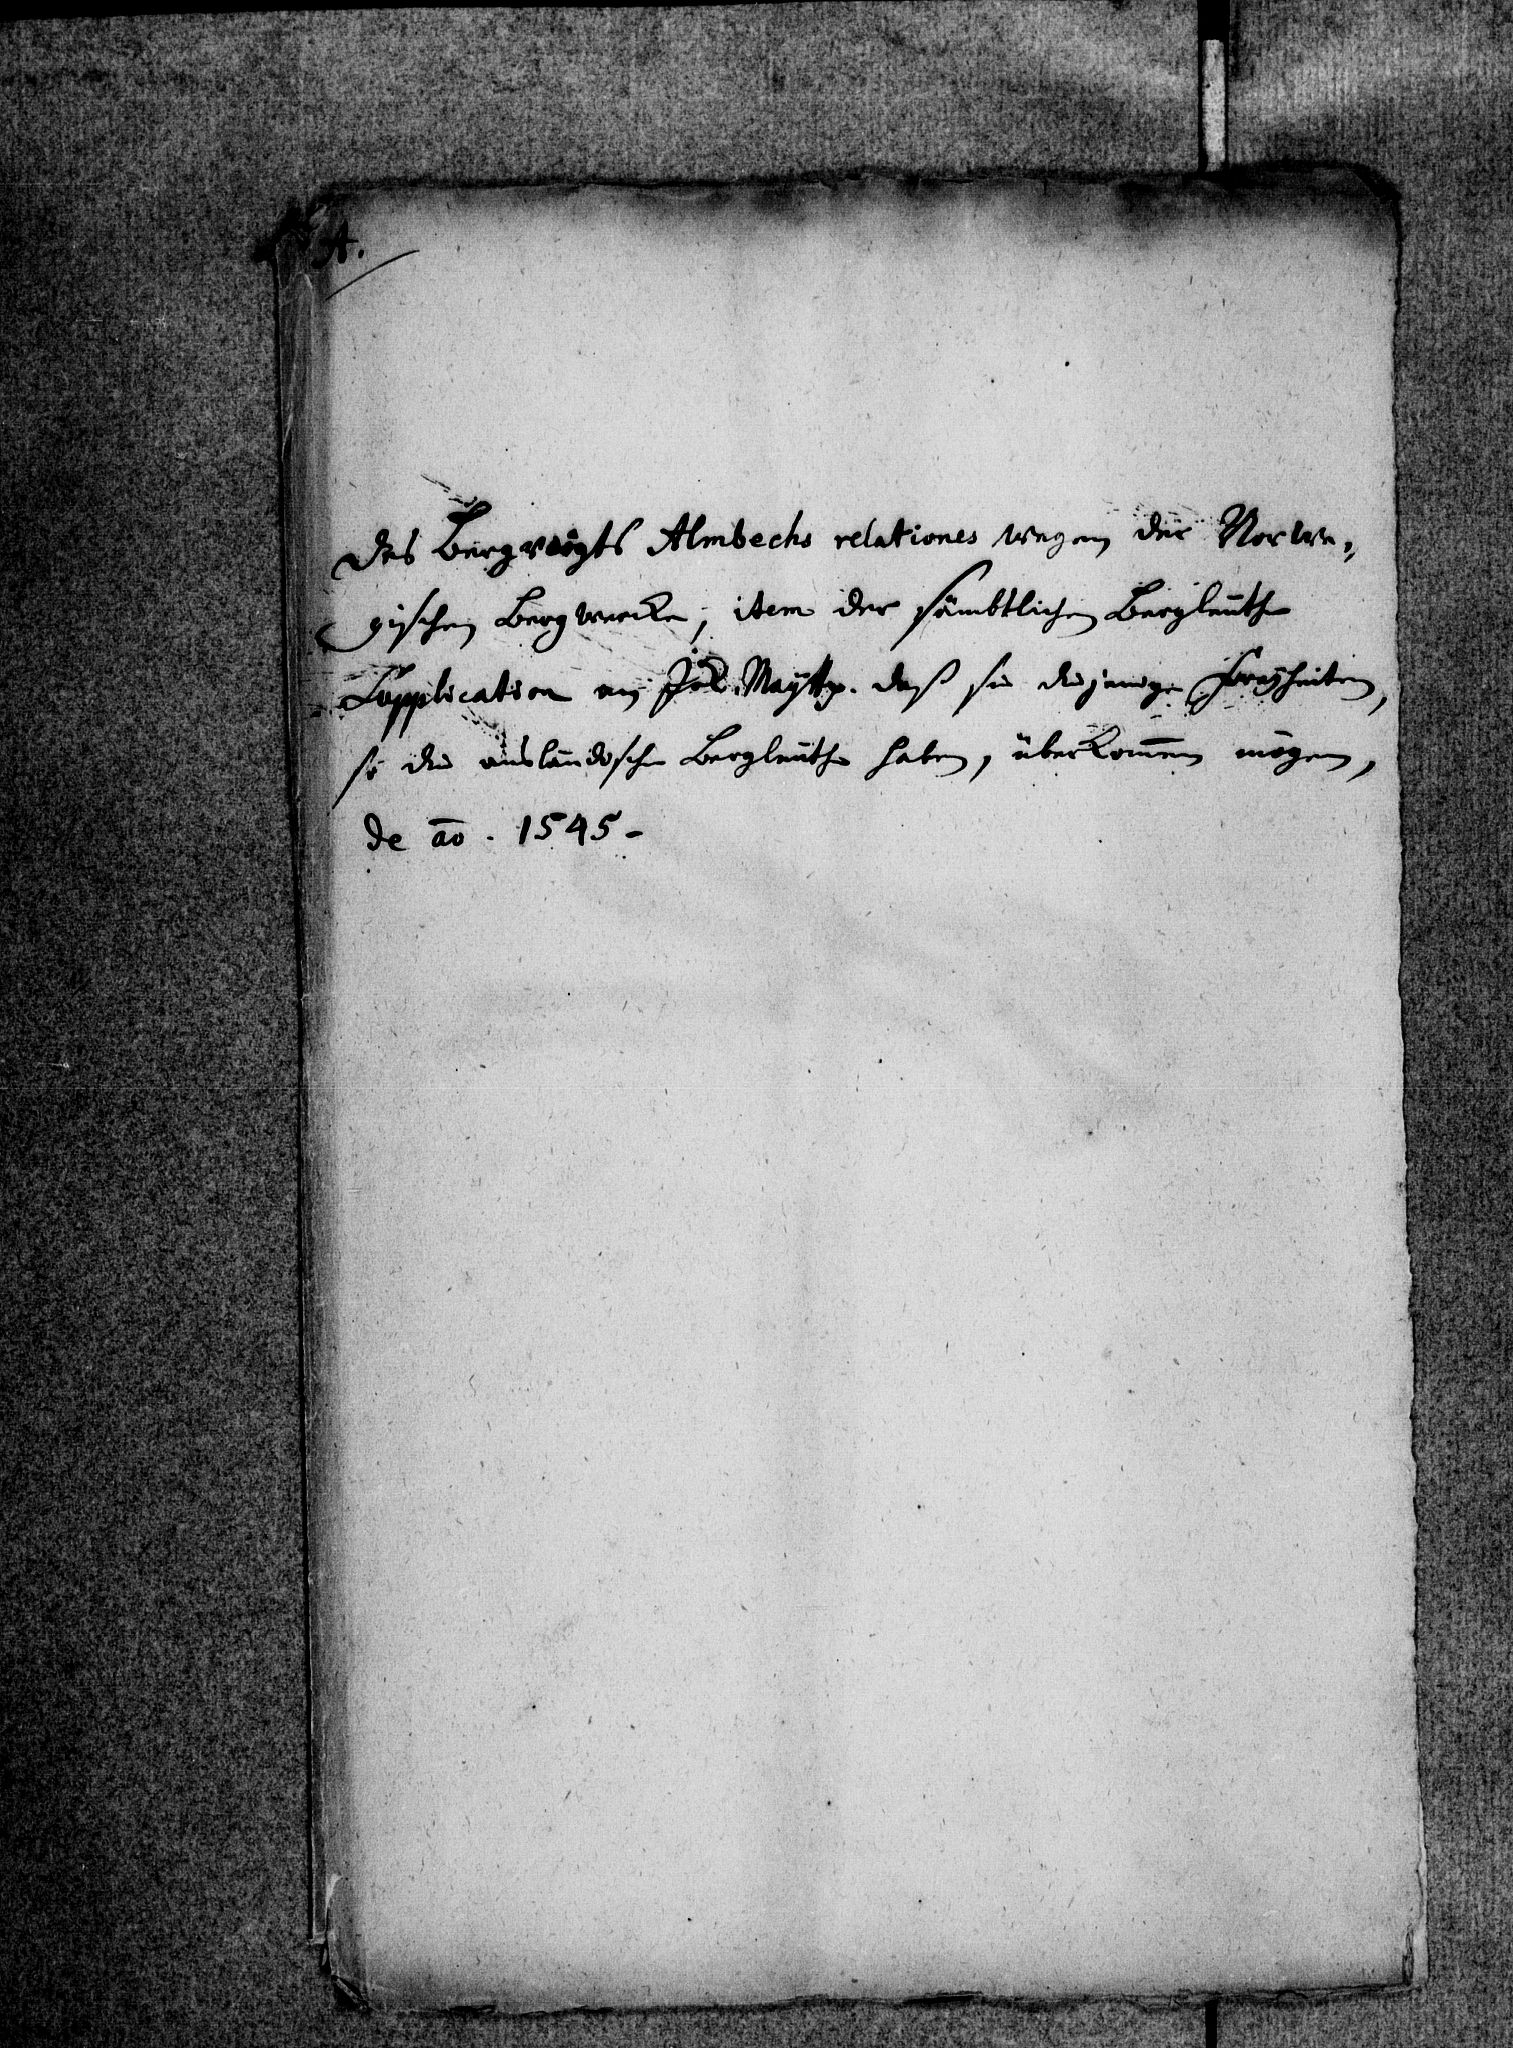 A.
Des Bergvoigts Almbechs relationes wegen der Norwe„
gischen Bergwercke, item der sämbtlichen Bergleuthe
Supplication an Ihr. Maytt. daß sie diejenige Freyheiten,
so die ausländische Bergleuthe haben, überkommen mögen,
de ao. 1545.